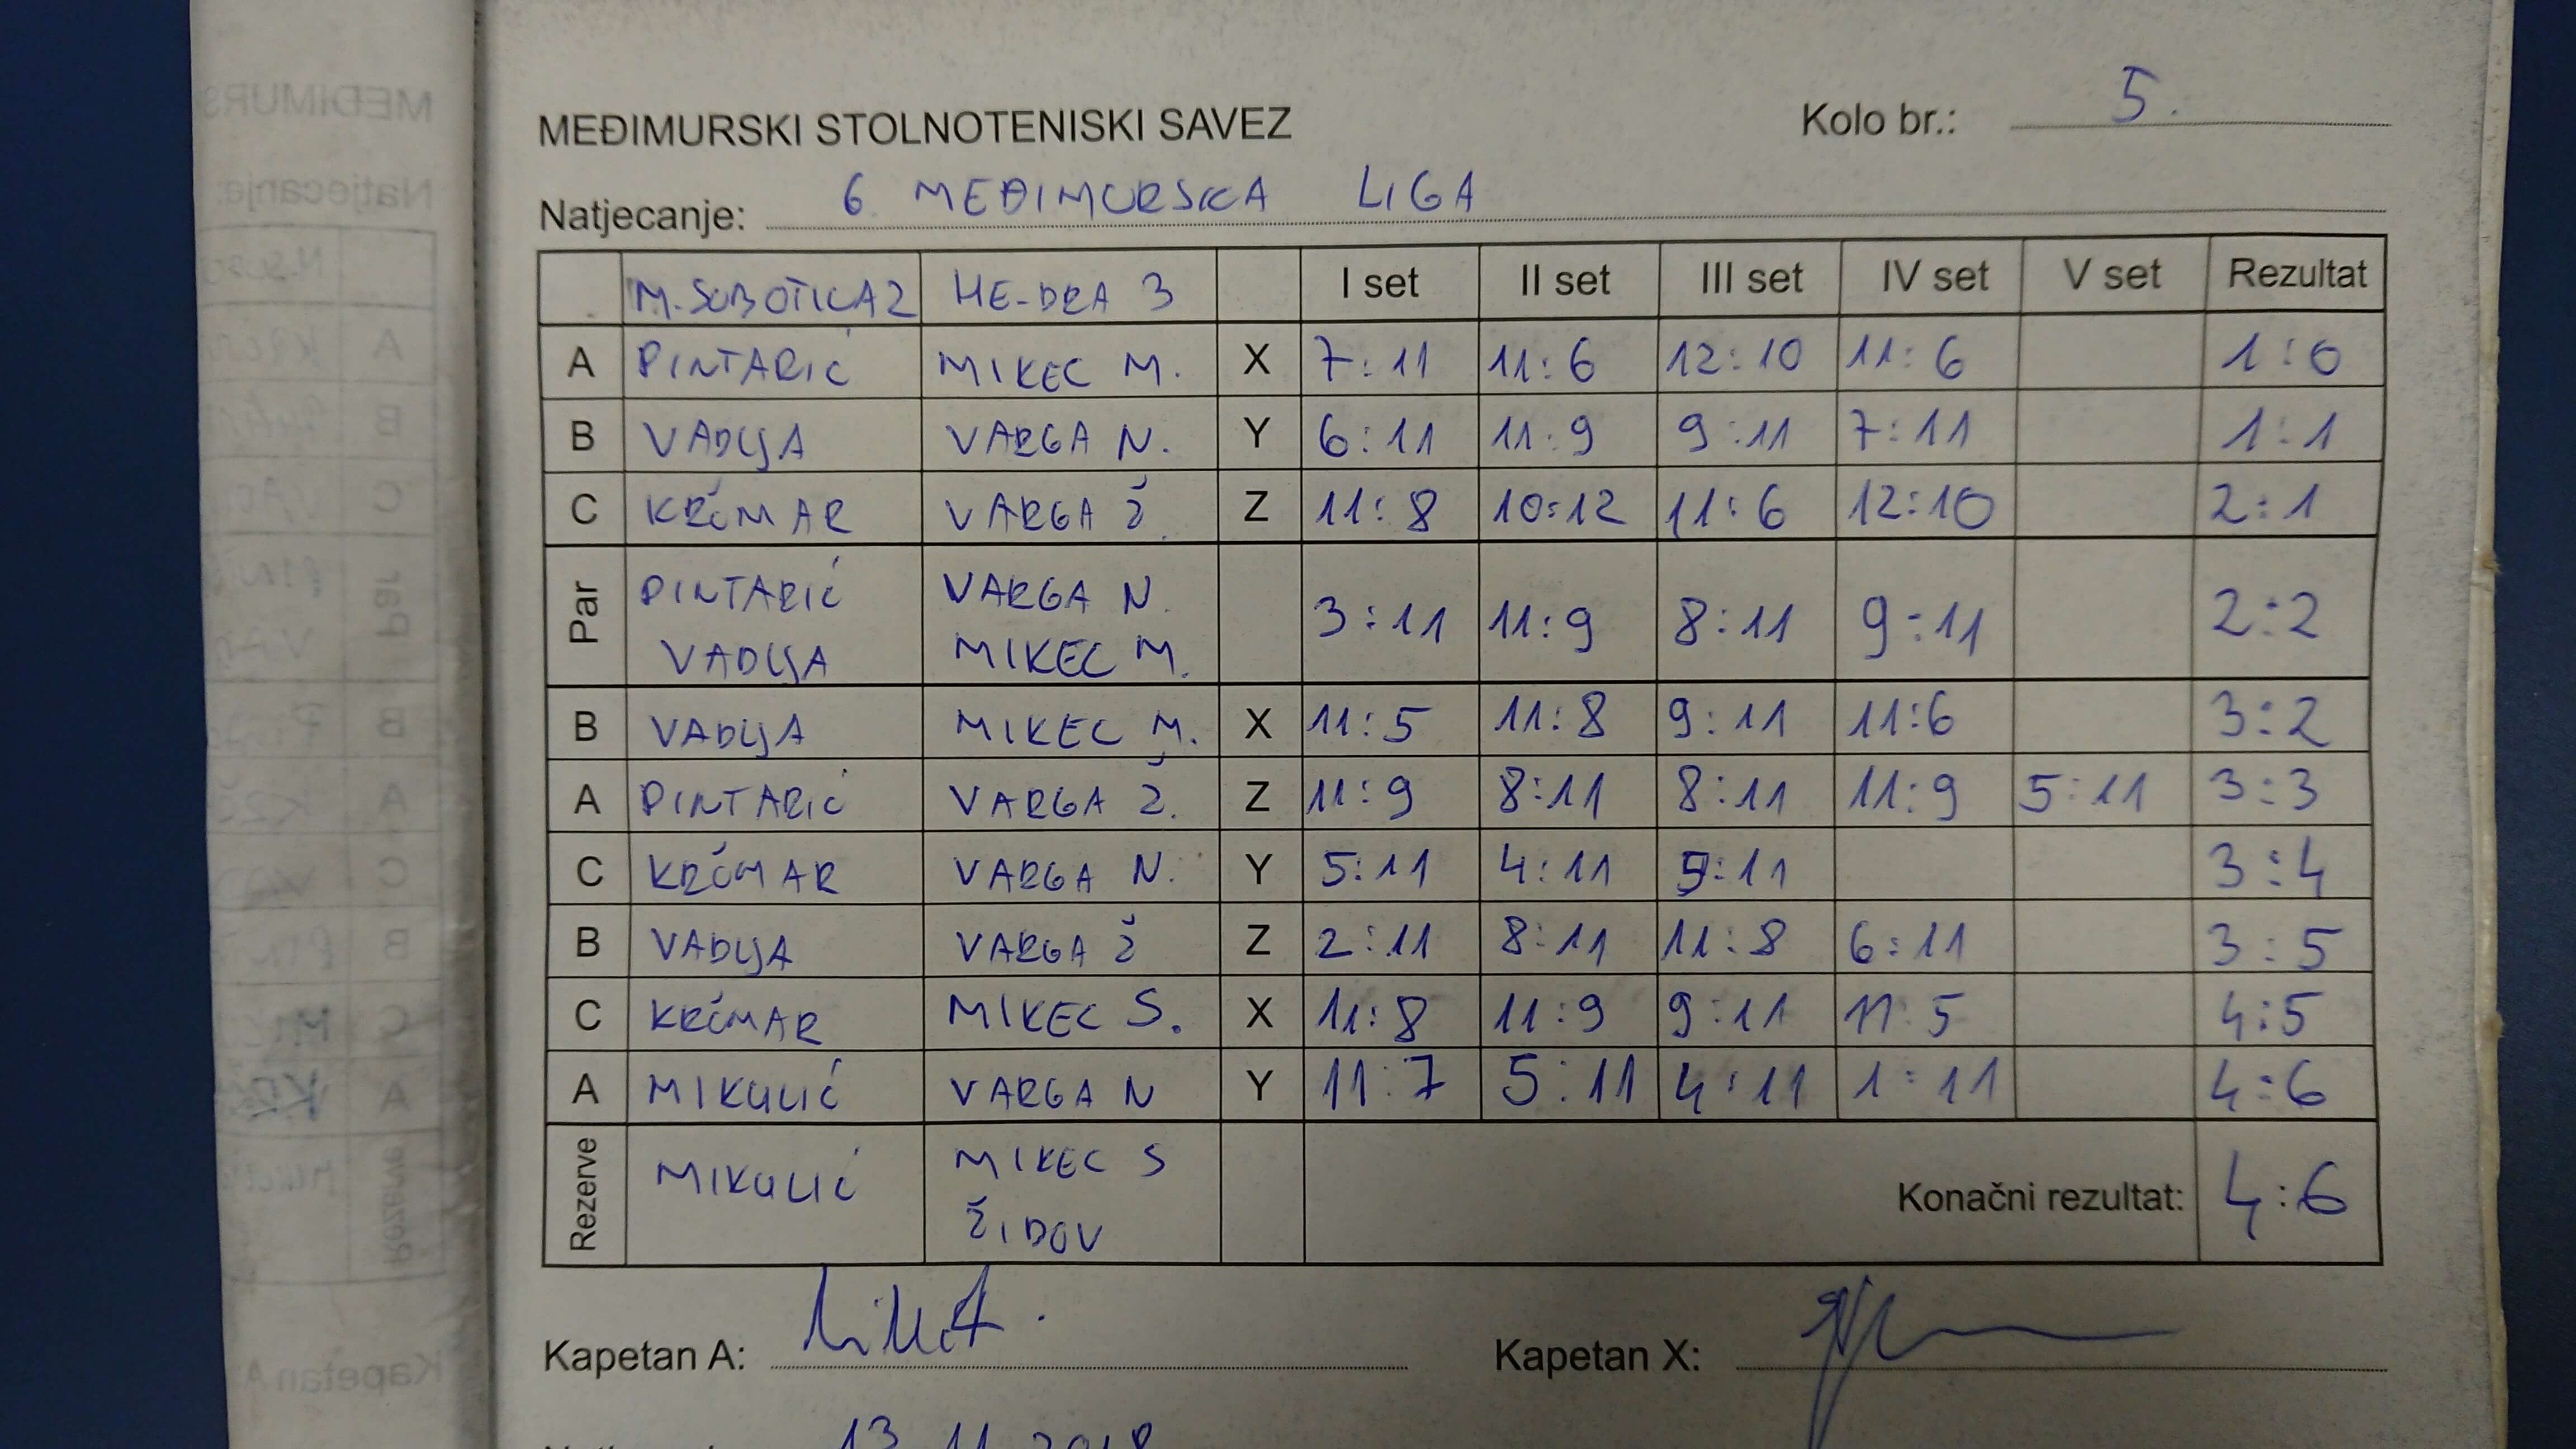 MEĐIMURSKI STOLNOTENISKI SAVEZ Kolo br.: 5.
Natjecanje: 6 MEĐIMURSKA LIGA
M.SUBOTICA2 HE-DRA 3 I set II set III set IV set V set Rezultat
A PINTARIĆ MIKEC M. X 7:11 11:6 12:10 11:6 1:0
B VADLJA VARGA N. Y 6:11 11:9 9:11 7:11 1:1
C KRČMAR VARGA Ž. Z 11:8 10:12 11:6 12:10 2:1
Par PINTARIĆ VARGA N. 3:11 11:9 8:11 9:11 2:2
VADLJA MIKEC M.
B VADLJA MIKEC M. X 11:5 11:8 9:11 11:6 3:2
A PINTARIĆ VARGA Ž. Z 11:9 8:11 8:11 11:9 5:11 3:3
C KRČMAR VARGA N. Y 5:11 4:11 9:11 3:4
B VADLJA VARGA Ž Z 2:11 8:11 11:8 6:11 3:5
C KRČMAR MIKEC S. X 11:8 11:9 9:11 11:5 4:5
A MIKULIĆ VARGA N Y 11:7 5:11 4:11 1:11 4:6
Rezerve MIKULIĆ MIKEC S
ŽIDOV Konačni rezultat: 4:6
Kapetan A: Kapetan X:
13.11.2018